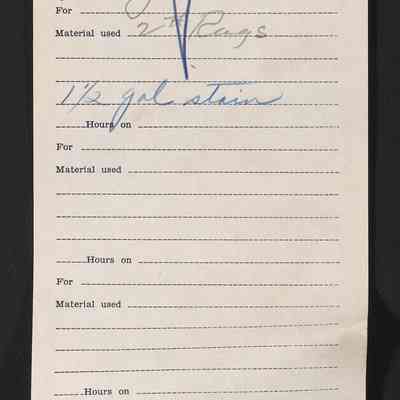 For
Material used 2# Rags
1½ gal stain
Hours on
For
Material used
Hours on
For
Material used
Hours on